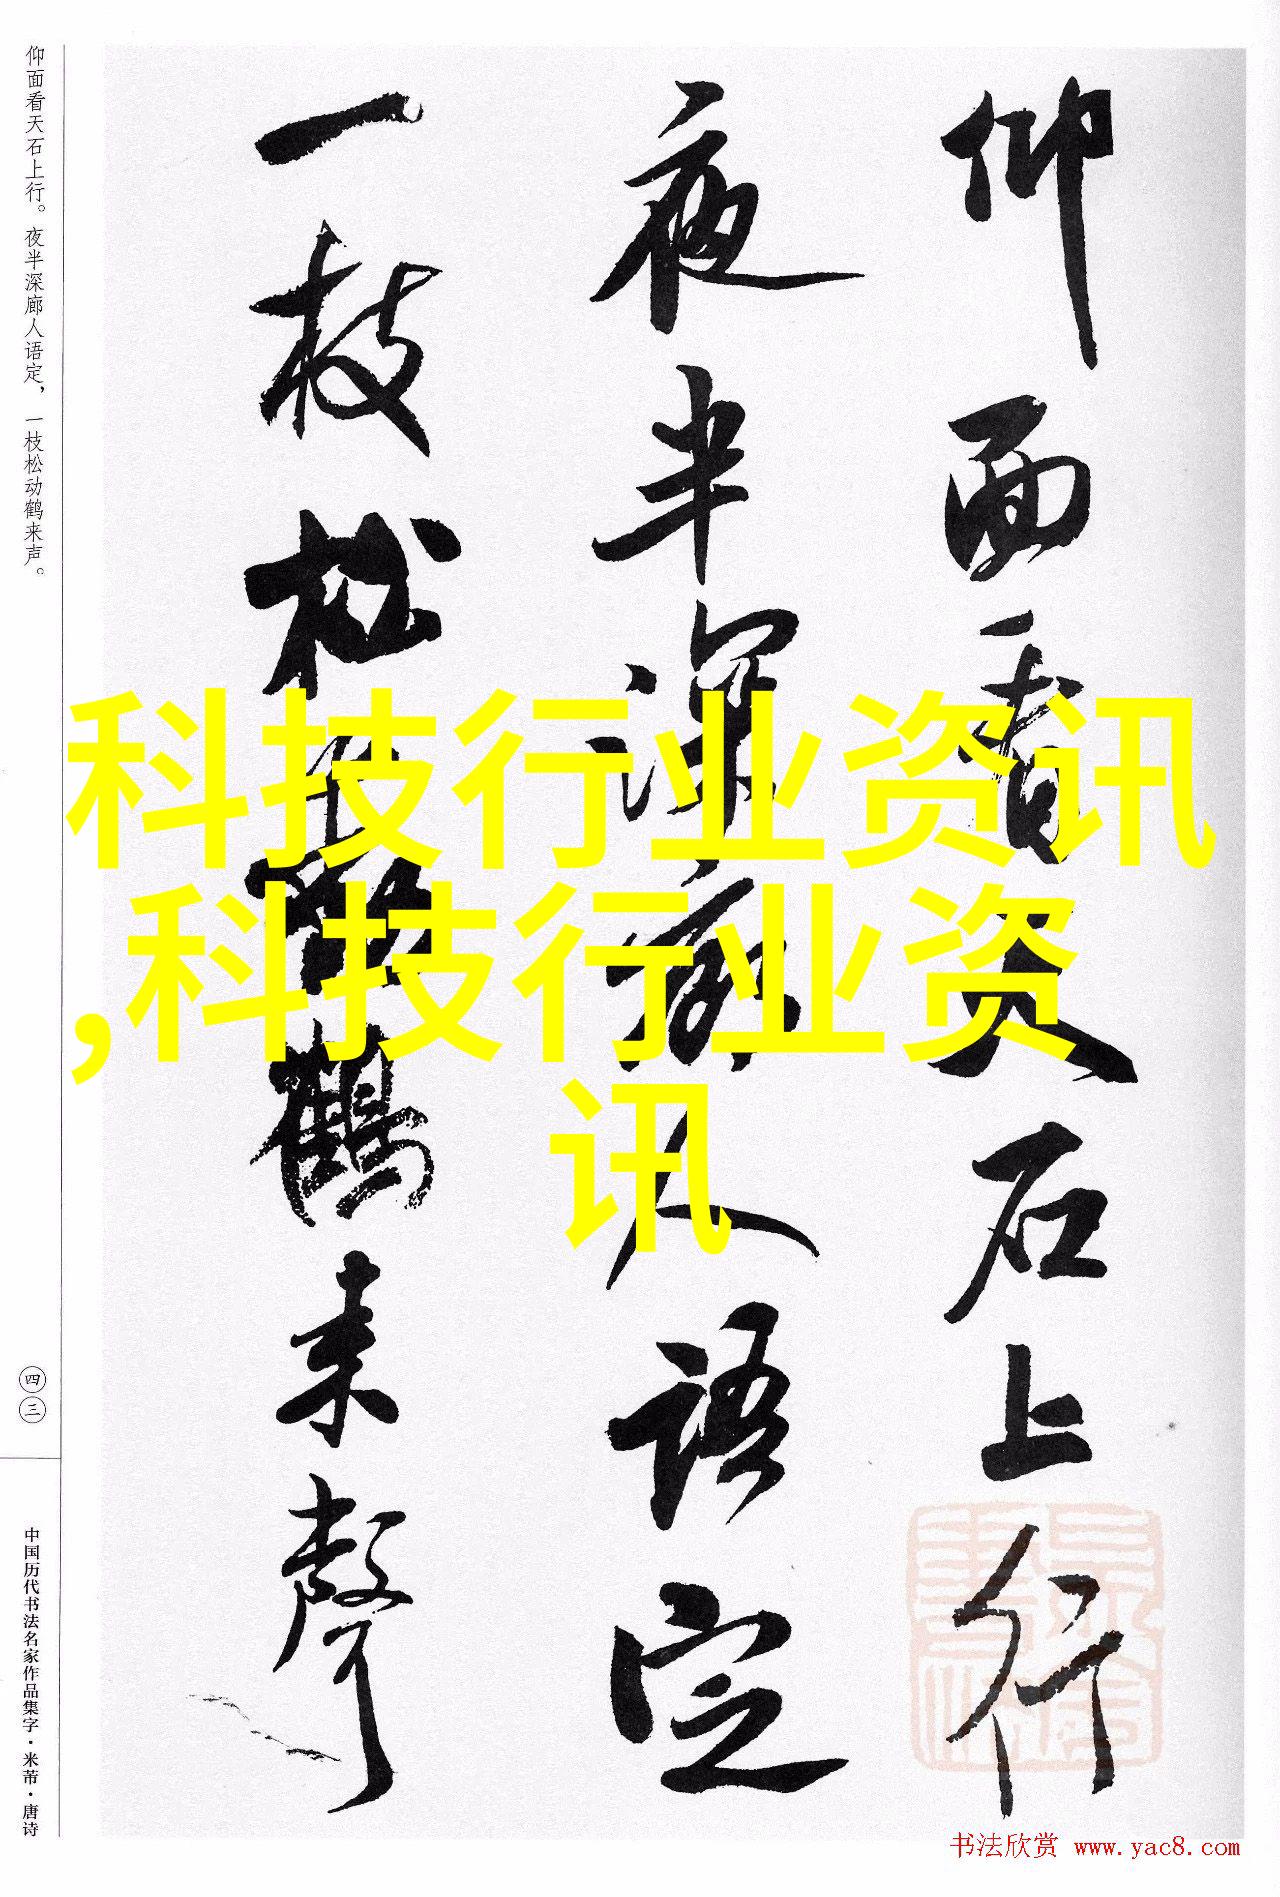 仰面看天石上行
夜半深廊人语定
一枝松动鹤来聲
仰面看天石上行。夜半深廊人语定，一枝松动鹤来声。
四三
中国历代书法名家作品集字·米芾·唐诗
科技行业资讯
,科技行业资
讯
书法欣赏 www.yac8.com